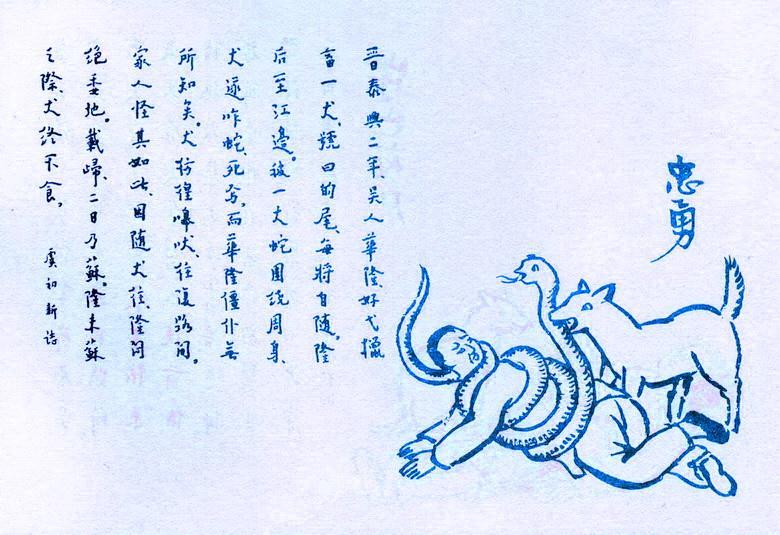 忠勇
晉泰興二年、吳人華隆、好弋獵
畜一犬、號曰的尾、每將自隨。隆
后至江邊。被一大蛇圍繞周身、
犬遂咋蛇、死焉。而華隆僵仆無
所知矣。犬彷徨嗥吠、往復路間。
家人怪其如此、因隨犬往、隆悶
絕委地。載歸、二日乃蘇。隆未蘇
之際、犬終不食。
虞初新誌